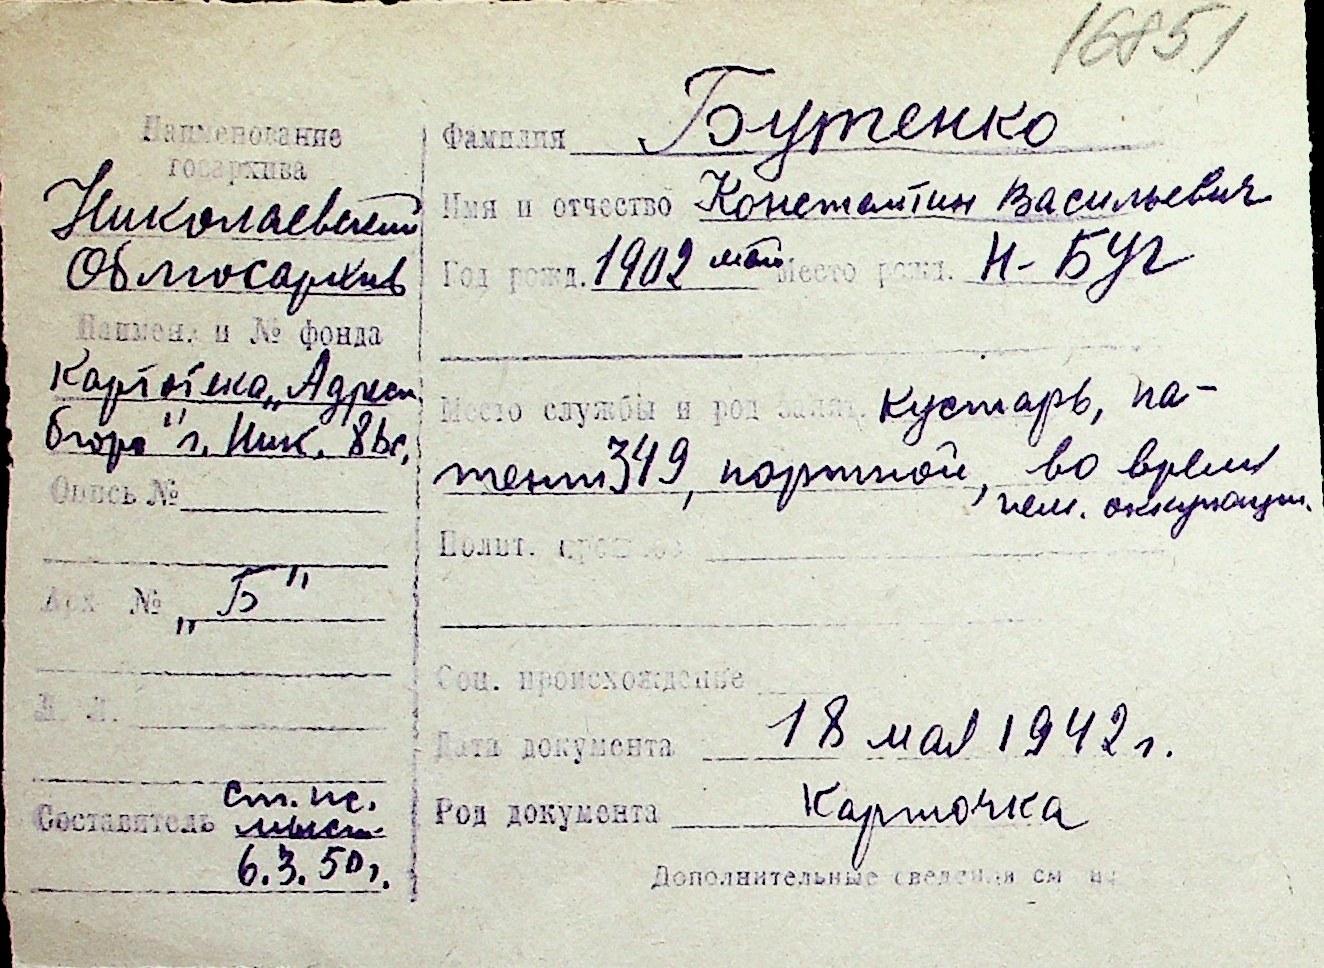 16851
Наименование
госархива
Николаевский
Облгосархив
Наимен. и № фонда
Картотека „Адресн.
бюро" г. Ник. 8
Опись №
Арх №
„Б"
Л. Л.
Составитель
ст. нс.
6.3.50г.
Фамилия Бутенко
Имя и отчество Константин Васильевич
Год рожд. 1902 май Место рожд. Н-Буг
Место службы и род занят. Кустарь, па-
тент 349, портной, во время
нем. оккупации.
Полит. прошлое
Соц. происхождение
Дата документа 18 мая 1942 г.
Род документа Карточка
Дополнительные сведения см на